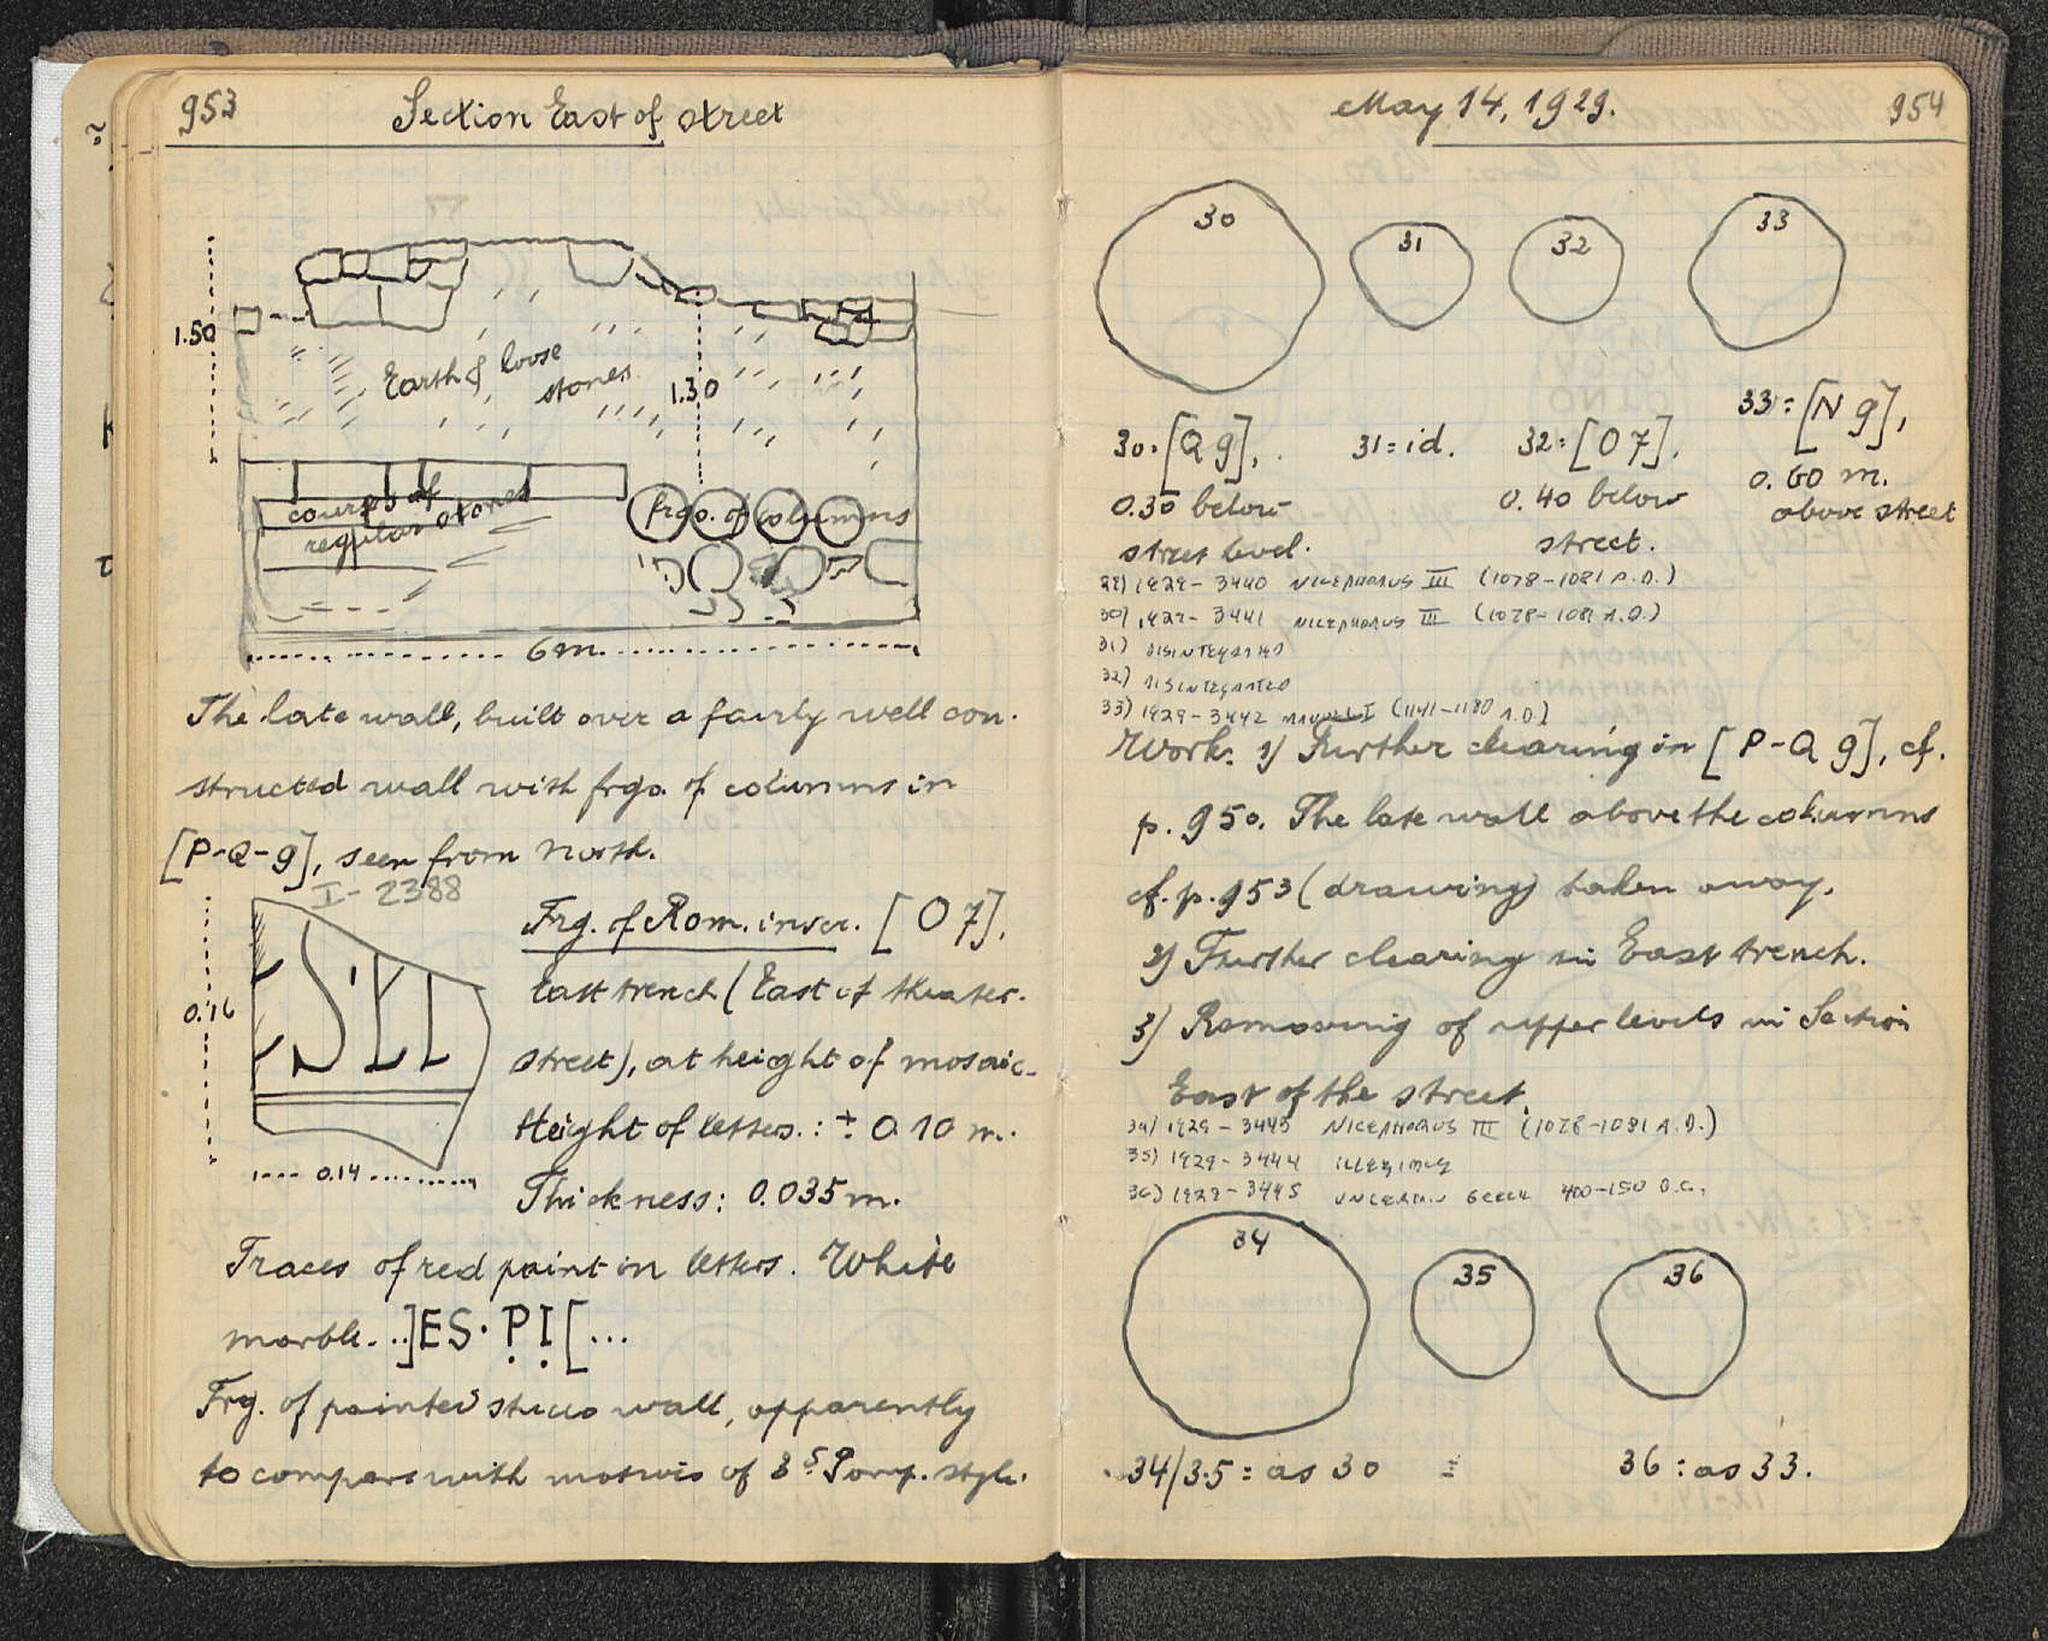 953
Section East of street
1.50
Earth & loose
stones
1.30
courses of
regular stones
frgs. of columns
6 m.
The late wall, built over a fairly well con-
structed wall with frgs. of columns in
[P-Q-9], seen from North.
I-2388
0.16
0.14
Frg. of Rom. inscr. [O 7],
East trench (East of theater-
street), at height of mosaic.
Height of letters.: ± 0.10 m.
Thickness: 0.035 m.
Traces of red paint in letters. White
marble. ..]ES· P̣Ị[...
Frg. of painted stucco wall, apparently
to compare with motivs of 3ᵈ Pomp. style.
May 14, 1929.
954
30
31
32
33
30=[Q 9],
0.30 below
street level.
31=id.
32=[O 7],
0.40 below
street.
33=[N 9],
0.60 m.
above street
29) 1929-3440 NICEPHORUS III (1078-1081 A.D.)
30) 1929-3441 NICEPHORUS III (1078-1081 A.D.)
31) DISINTEGRATED
32) DISINTEGRATED
33) 1929-3442 MANUEL I (1141-1180 A.D.)
Work: 1) Further clearing in [P-Q 9], cf.
p. 950. The late wall above the columns
cf. p. 953 (drawing) taken away.
2) Further clearing in East trench.
3) Removing of upper levels in Section
East of the street.
34) 1929-3443 NICEPHORUS III (1078-1081 A.D.)
35) 1929-3444 ILLEGIBLE
36) 1929-3445 UNCERTAIN GREEK 400-150 B.C.
34
35
36
34/35: as 30
36: as 33.